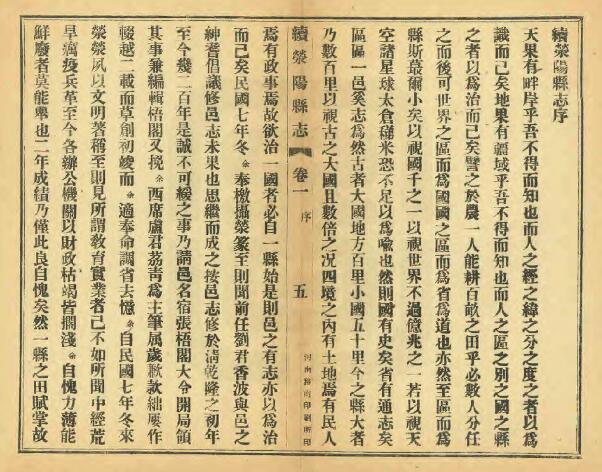 續滎陽縣志序
天果有畔岸乎吾不得而知也而人之經之緯之分之度之者以爲
識而已矣地果有疆域乎吾不得而知也而人之區之別之國之縣
之者以爲治而已矣譬之於農一人能耕百畝之田乎必數人分任
之而後可世界之區而爲國國之區而爲省爲道也亦然至區而爲
縣斯蕞爾小矣以視國千之一以視世界不過億兆之一若以視天
空諸星球太倉稊米恐不足以爲喩也然則國有史矣省有通志矣
區區一邑奚志爲然古者大國地方百里小國五十里今之縣大者
乃數百里以視古之大國且數倍之况四境之內有土地焉有民人
續滎陽縣志
卷一
序
五
河南商務印刷所印
焉有政事焉故欲治一國者必自一縣始是則邑之有志亦以爲治
而已矣民國七年冬余奉檄攝滎篆至則聞前任劉君香波與邑之
紳耆倡議修邑志未果也思繼而成之按邑志修於淸乾隆之初年
至今幾二百年是誠不可緩之事乃請邑名宿張梧閣大令開局領
其事兼編輯梧閣又挽余西席盧君荔靑爲主筆属歲歉款絀屢作
輟越二載而草創初竣而余適奉命調省去憶余自民國七年冬來
滎滎夙以文明著稱至則見所謂敎育實業者已不如所聞中經荒
旱癘疫兵革至今各辦公機關以財政枯竭皆擱淺余自愧力薄能
鮮廢者莫能舉也二年成績乃僅此良自愧矣然一縣之田賦掌故